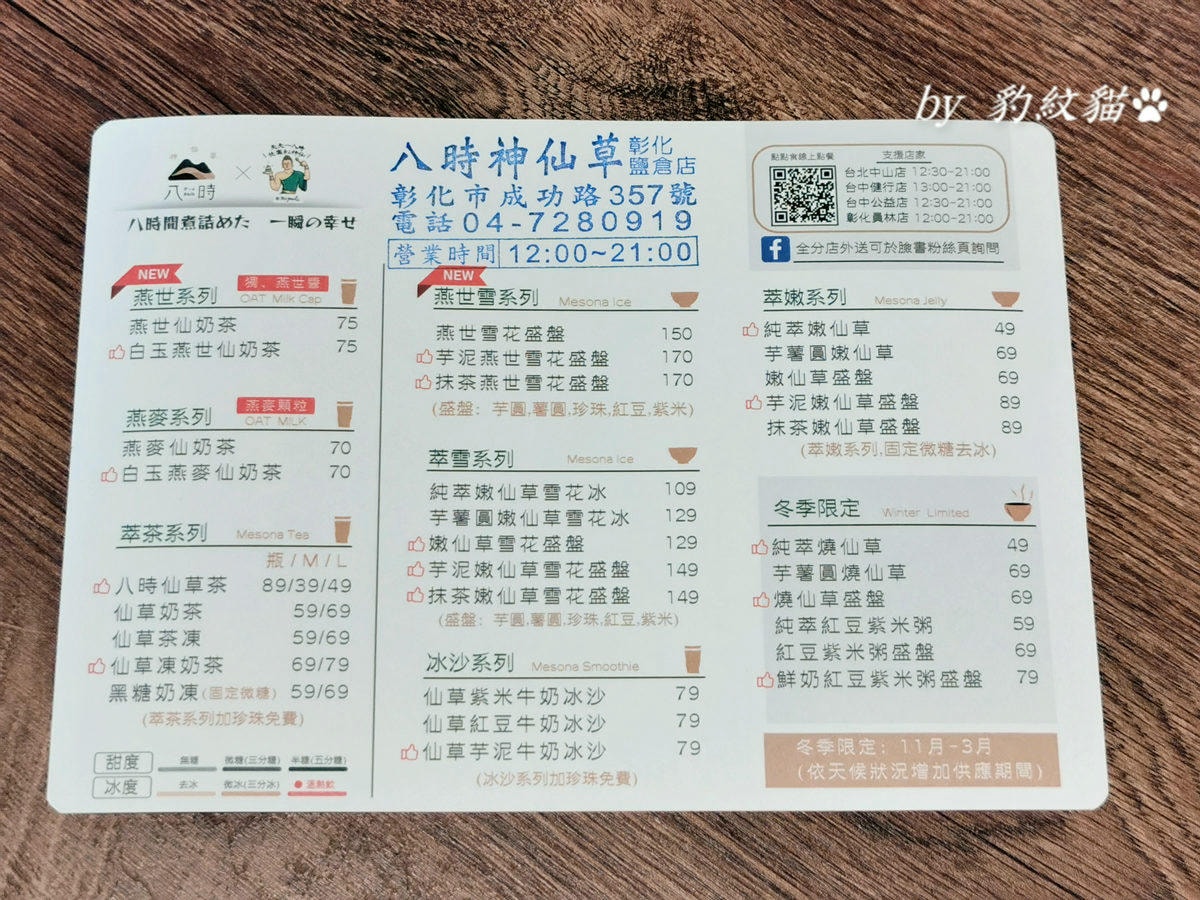 by 豹紋貓
八時
八時間煮詰めた 一瞬の幸せ
八時神仙草 彰化鹽倉店
彰化市成功路357號
電話04-7280919
營業時間 12:00~21:00
點點食線上點餐
支援店家
台北中山店 12:30-21:00
台中健行店 13:00-21:00
台中公益店 12:30-21:00
彰化員林店 12:00-21:00
全分店外送可於臉書粉絲頁詢問
NEW
燕世系列 獨、燕世醬 OAT Milk Cap
燕世仙奶茶 75
白玉燕世仙奶茶 75
燕麥系列 燕麥顆粒 OAT MILK
燕麥仙奶茶 70
白玉燕麥仙奶茶 70
萃茶系列 Mesona Tea
瓶/M/L
八時仙草茶 89/39/49
仙草奶茶 59/69
仙草茶凍 59/69
仙草凍奶茶 69/79
黑糖奶凍(固定微糖) 59/69
(萃茶系列加珍珠免費)
甜度 無糖 微糖(三分糖) 半糖(五分糖)
冰度 去冰 微冰(三分冰) 溫熱飲
NEW
燕世雪系列 Mesona Ice
燕世雪花盛盤 150
芋泥燕世雪花盛盤 170
抹茶燕世雪花盛盤 170
(盛盤: 芋圓,薯圓,珍珠,紅豆,紫米)
萃雪系列 Mesona Ice
純萃嫩仙草雪花冰 109
芋薯圓嫩仙草雪花冰 129
嫩仙草雪花盛盤 129
芋泥嫩仙草雪花盛盤 149
抹茶嫩仙草雪花盛盤 149
(盛盤: 芋圓,薯圓,珍珠,紅豆,紫米)
冰沙系列 Mesona Smoothie
仙草紫米牛奶冰沙 79
仙草紅豆牛奶冰沙 79
仙草芋泥牛奶冰沙 79
(冰沙系列加珍珠免費)
萃嫩系列 Mesona Jelly
純萃嫩仙草 49
芋薯圓嫩仙草 69
嫩仙草盛盤 69
芋泥嫩仙草盛盤 89
抹茶嫩仙草盛盤 89
(萃嫩系列,固定微糖去冰)
冬季限定 Winter Limited
純萃燒仙草 49
芋薯圓燒仙草 69
燒仙草盛盤 69
純萃紅豆紫米粥 59
紅豆紫米粥盛盤 69
鮮奶紅豆紫米粥盛盤 79
冬季限定: 11月-3月
(依天候狀況增加供應期間)